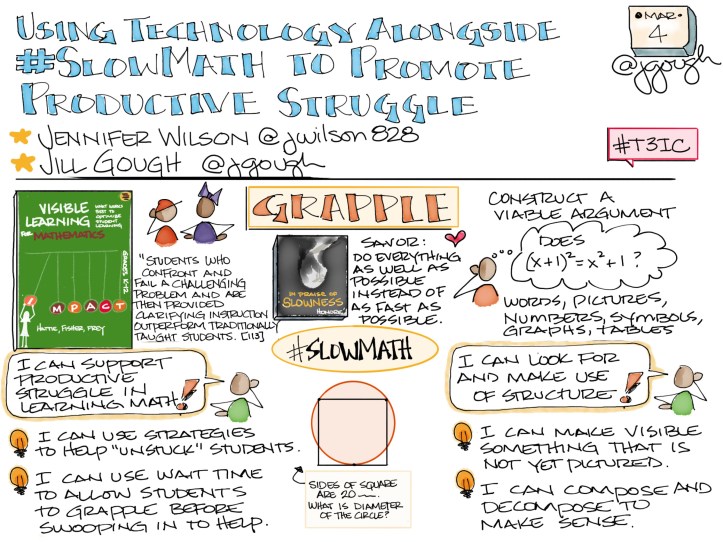 USING TECHNOLOGY ALONGSIDE
#SLOWMATH TO PROMOTE
PRODUCTIVE STRUGGLE
MAR
4
@jgough
JENNIFER WILSON @jwilson828
JILL GOUGH @jgough
#T3IC
VISIBLE
LEARNING
FOR MATHEMATICS
WHAT WORKS
BEST TO
OPTIMIZE
STUDENT
LEARNING
GRADES K-12
IMPACT
HATTIE, FISHER, FREY
"STUDENTS WHO
CONFRONT AND
FAIL A CHALLENGING
PROBLEM AND ARE
THEN PROVIDED
CLARIFYING INSTRUCTION
OUTPERFORM TRADITIONALLY
TAUGHT STUDENTS. [113]
GRAPPLE
IN PRAISE OF
SLOWNESS
HONORÉ
SAVOR:
DO EVERYTHING
AS WELL AS
POSSIBLE
INSTEAD OF
AS FAST AS
POSSIBLE.
CONSTRUCT A
VIABLE ARGUMENT
DOES
(x+1)²=x²+1?
WORDS, PICTURES,
NUMBERS, SYMBOLS,
GRAPHS, TABLES
#SLOWMATH
I CAN SUPPORT
PRODUCTIVE
STRUGGLE IN
LEARNING MATH!
I CAN USE STRATEGIES
TO HELP "UNSTUCK" STUDENTS.
I CAN USE WAIT TIME
TO ALLOW STUDENTS
TO GRAPPLE BEFORE
SWOOPING IN TO HELP.
SIDES OF SQUARE
ARE 20
WHAT IS DIAMETER
OF THE CIRCLE?
I CAN LOOK FOR
AND MAKE USE
OF STRUCTURE!
I CAN MAKE VISIBLE
SOMETHING THAT IS
NOT YET PICTURED.
I CAN COMPOSE AND
DECOMPOSE TO
MAKE SENSE.